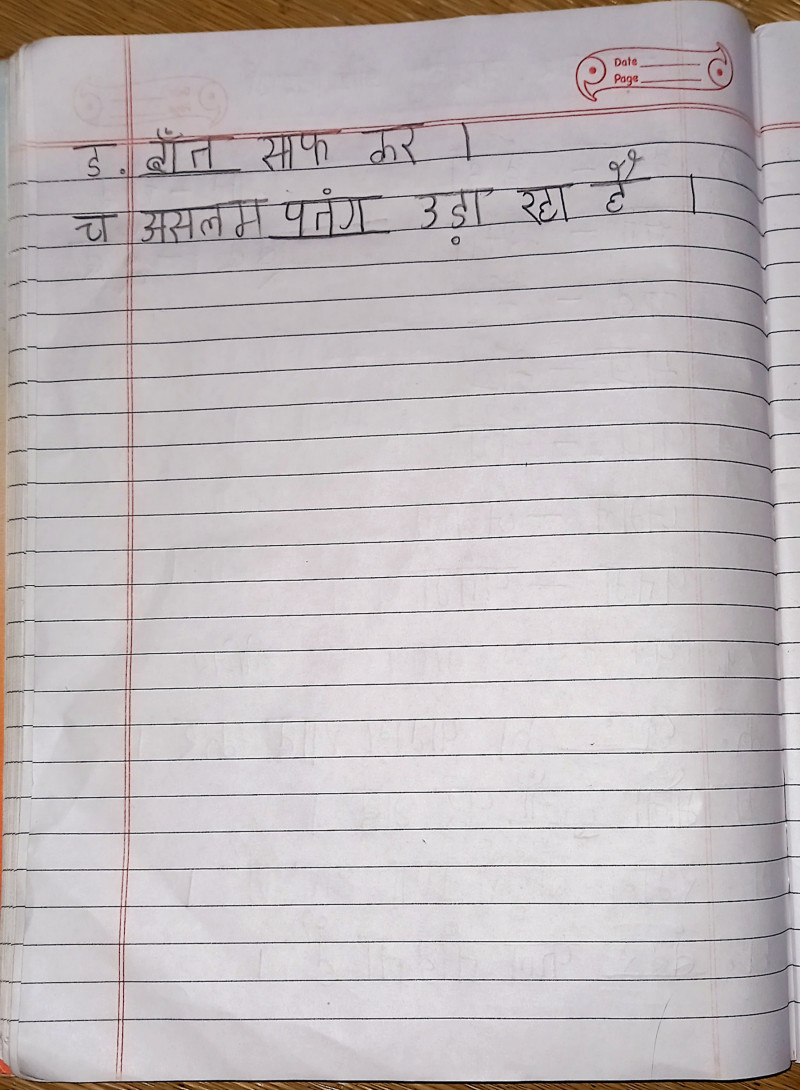 Date
Page
ड. दाँत साफ कर ।
च असलम पतंग उड़ा रहा है ।